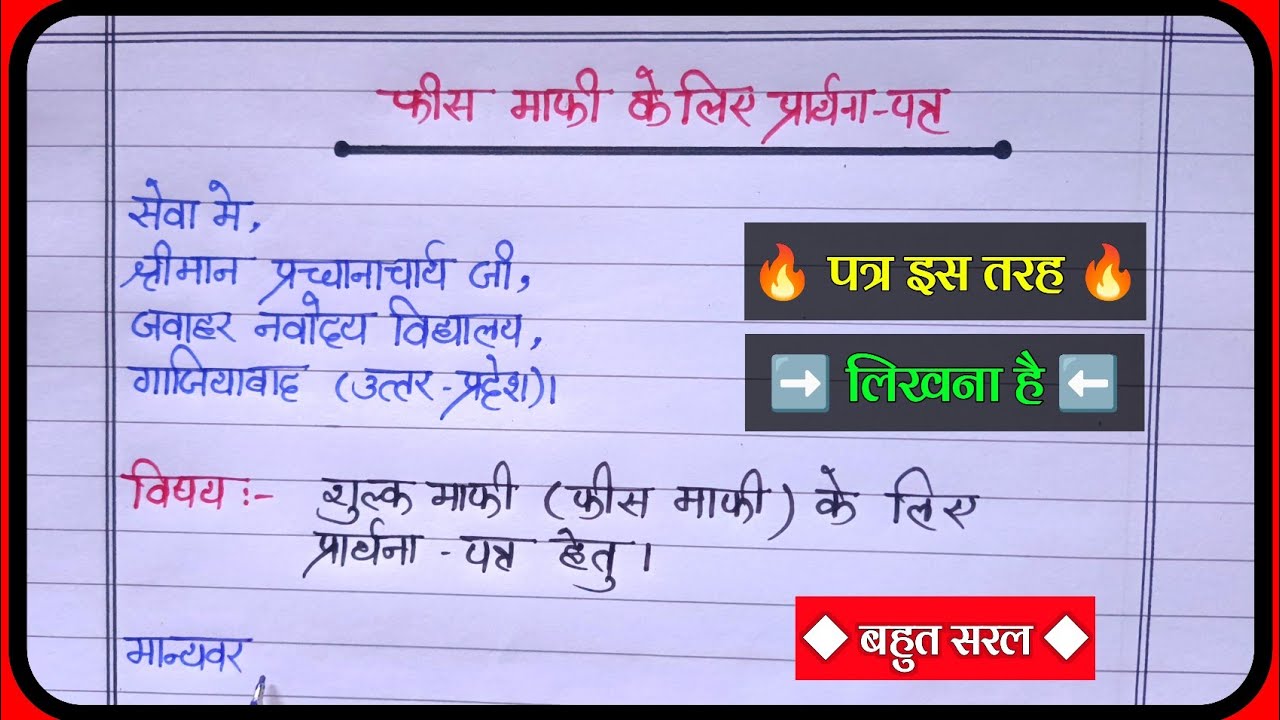 फीस माफी के लिए प्रार्थना-पत्र
सेवा मे,
श्रीमान प्रधानाचार्य जी,
जवाहर नवोदय विद्यालय,
गाजियाबाद (उत्तर-प्रदेश)।
🔥 पत्र इस तरह 🔥
➡️ लिखना है ⬅️
विषय :- शुल्क माफी (फीस माफी) के लिए
प्रार्थना-पत्र हेतु।
मान्यवर
◆ बहुत सरल ◆